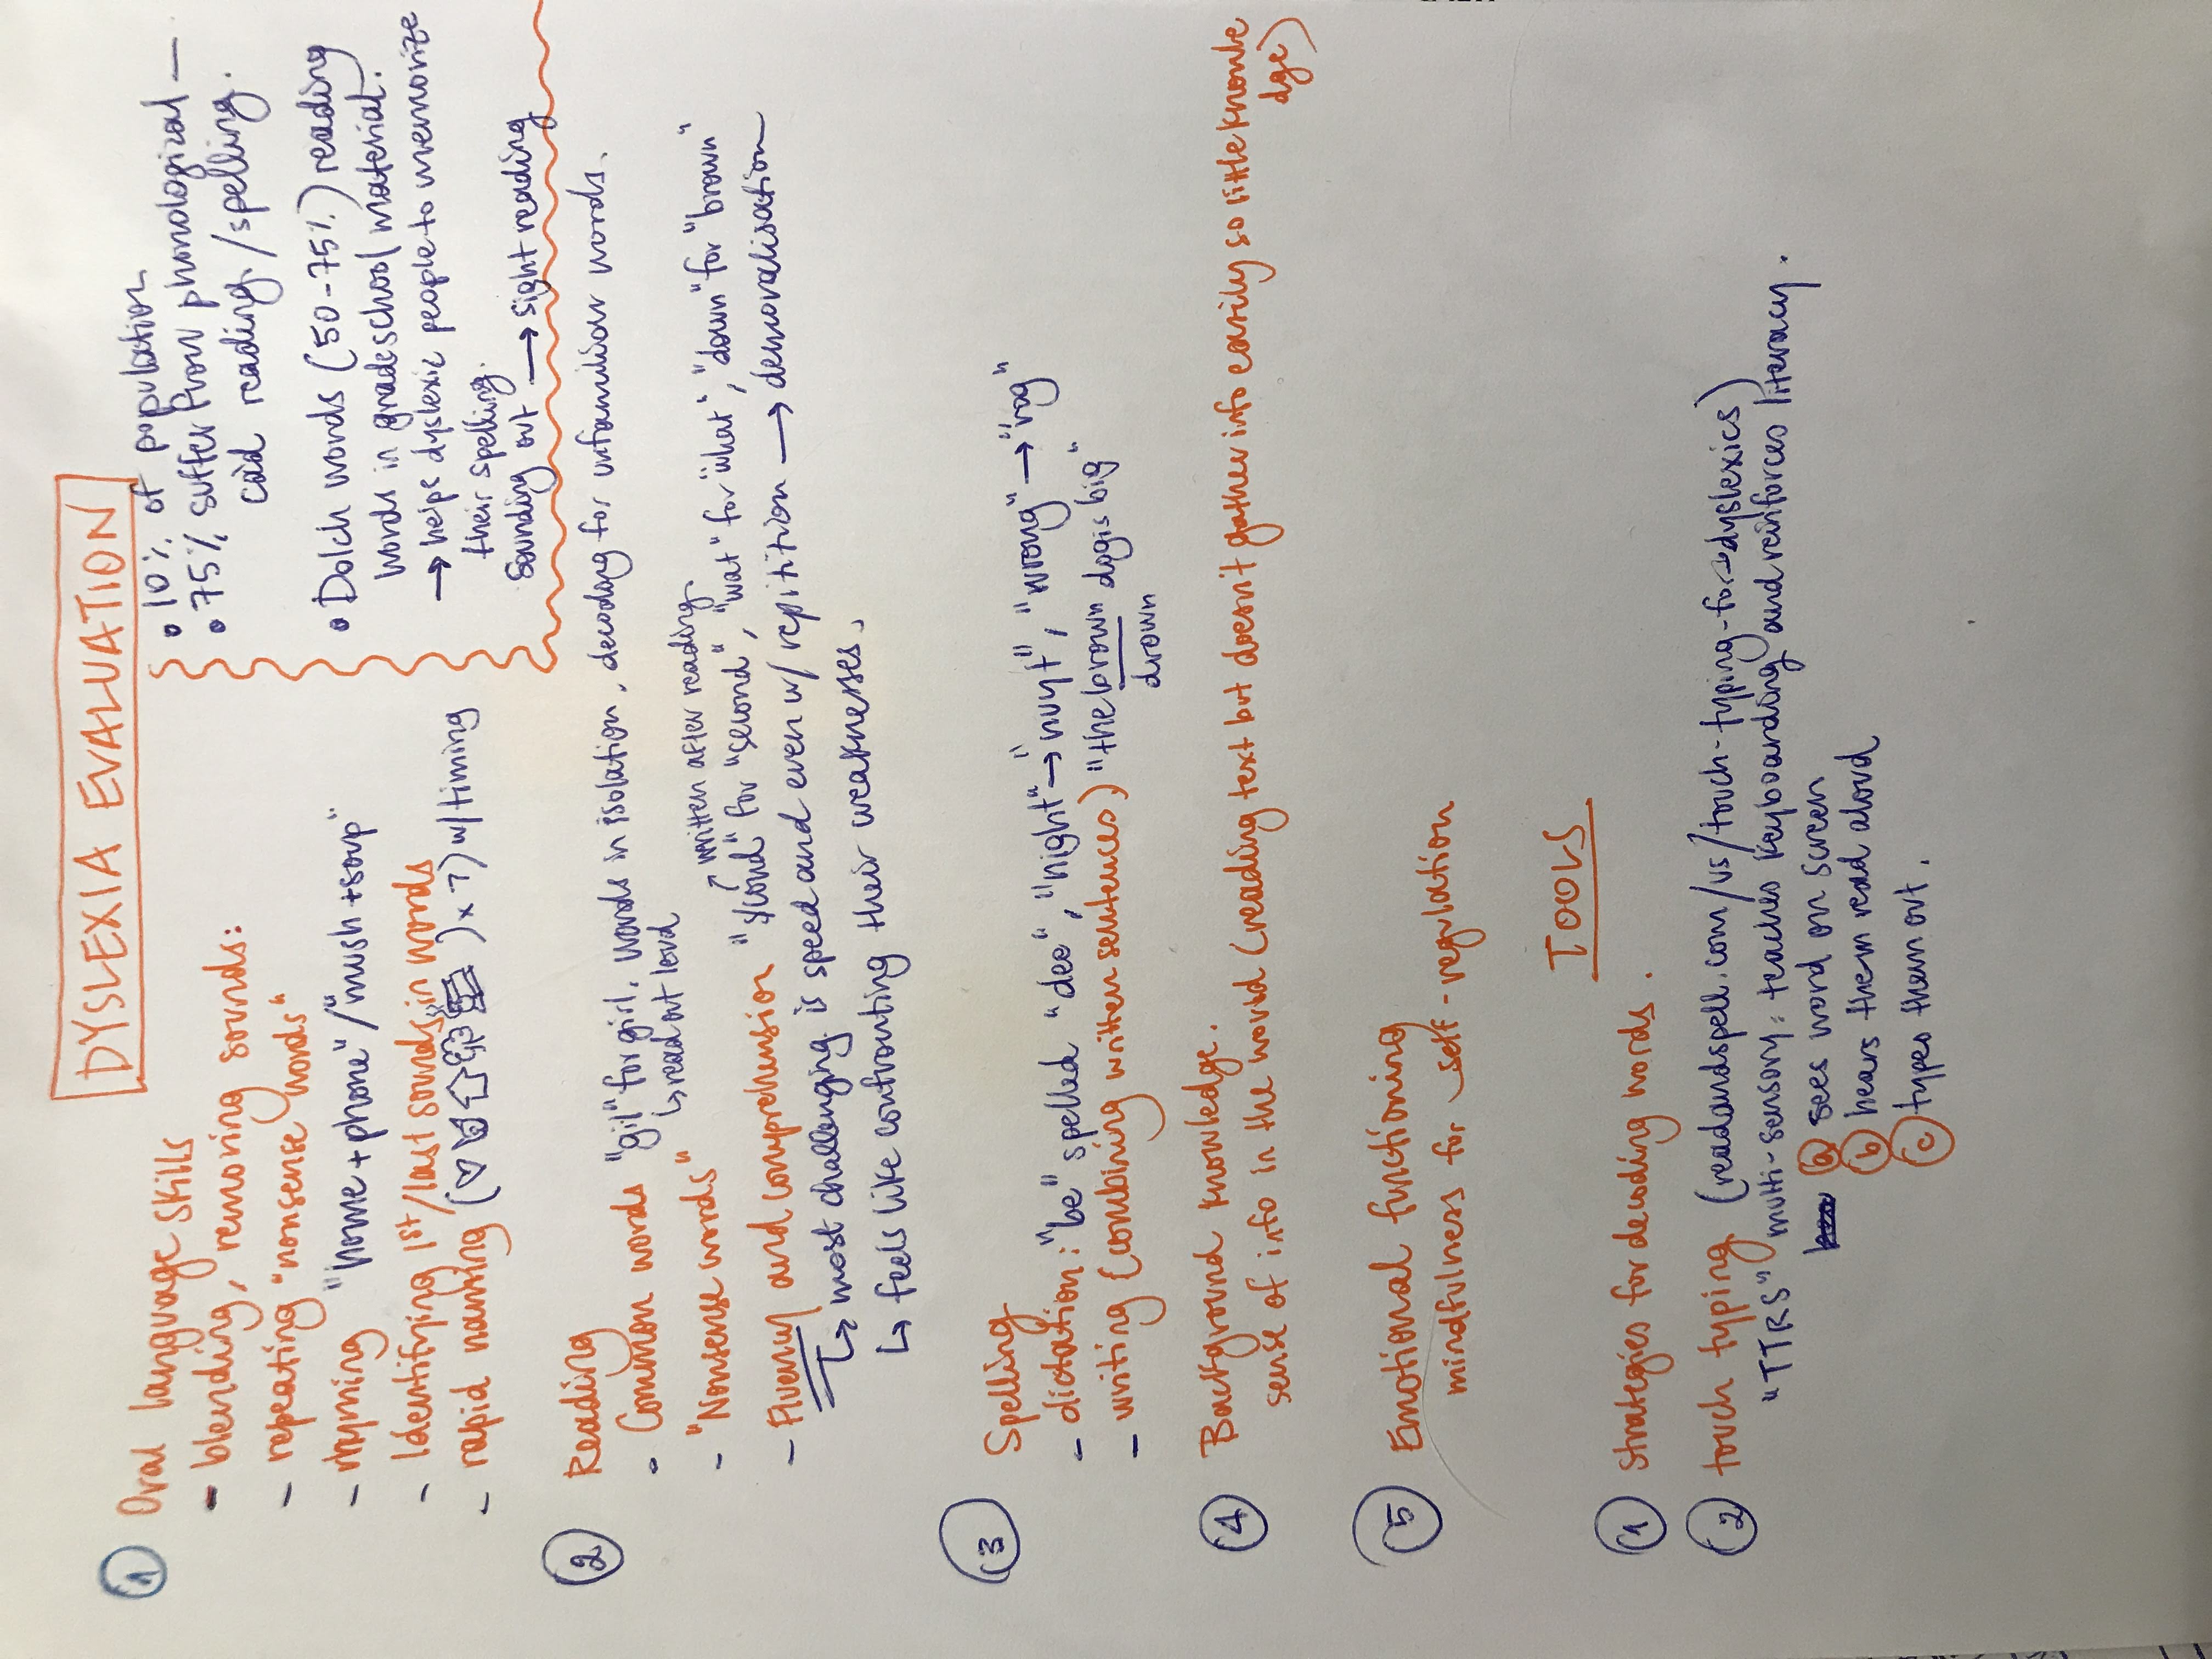 DYSLEXIA EVALUATION
1 Oral language skills
- blending, removing sounds:
- repeating "nonsense words"
- rhyming "home + phone" / "mush + soup"
- Identifying 1st/last sounds in words
- rapid naming ( ) x 7) w/ timing
• 10% of population
• 75% suffer from phonological —
reading/spelling.
• Dolch words (50-75%) reading
words in gradeschool material.
→ helps dyslexic people to memorize
their spelling.
Sounding out → sight reading
2 Reading
- Common words "gil" for girl. words in isolation, decoding for unfamiliar words.
↳ read out loud
- "Nonsense words"
↗ written after reading.
- Fluency and comprehension for "second", "wat" for "what", "down" for "brown"
↳ most challenging is speed and even w/ repitition → demoralisation
↳ feels like confronting their weaknesses.
3 Spelling
- dictation: "be" spelled "dee", "night" → "nuyt", "wrong" → "rog"
- writing (combining written sentences) "the brown dog is big"
drown
4 Background knowledge.
sense of info in the world (reading text but doesn't gather info easily so little knowle
dge)
5 Emotional functioning
mindfulness for self-regulation
TOOLS
1 Strategies for decoding words.
2 touch typing (readandspell.com/us/touch-typing-for-dyslexics)
"TTRS" multi-sensory: teaches keyboarding and reinforces literacy.
a sees word on screen
b hears them read aloud
c types them out.